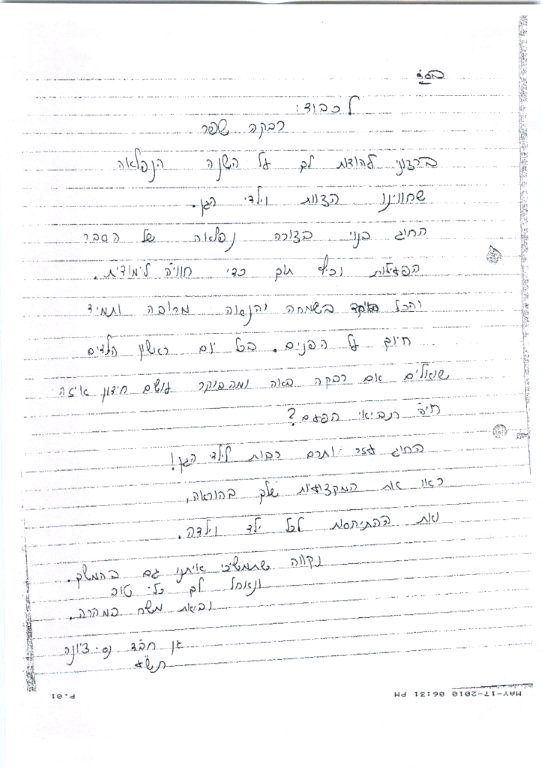 בס"ד
לכבוד:
רבקה שפר
ברצוני להודות לך על השנה הנפלאה
שחווינו הצוות וילדי הגן.
החוג בנוי בצורה נפלאה של הסבר
הפעלות וכיף תוך כדי חוויה לימודית.
והכל בשמחה והנאה מרובה ותמיד
חיוך על הפנים. בכל יום ראשון הילדים
שואלים אם רבקה באה ומהבוקר עושים חידון איזה
חיה תביאי הפעם?
החוג עזר ותרם רבות לילדי הגן!
ראו את המקצועיות שלך בהוראה,
ואת ההתיחסות לכל ילד וילדה.
נקווה שתמשיכי איתנו גם בהמשך.
ונאחל לך כל טוב
וביאת משיח במהרה.
גן חב"ד נס-ציונה
תש"ע
MAY-17-2010 06:21 PM
P.01